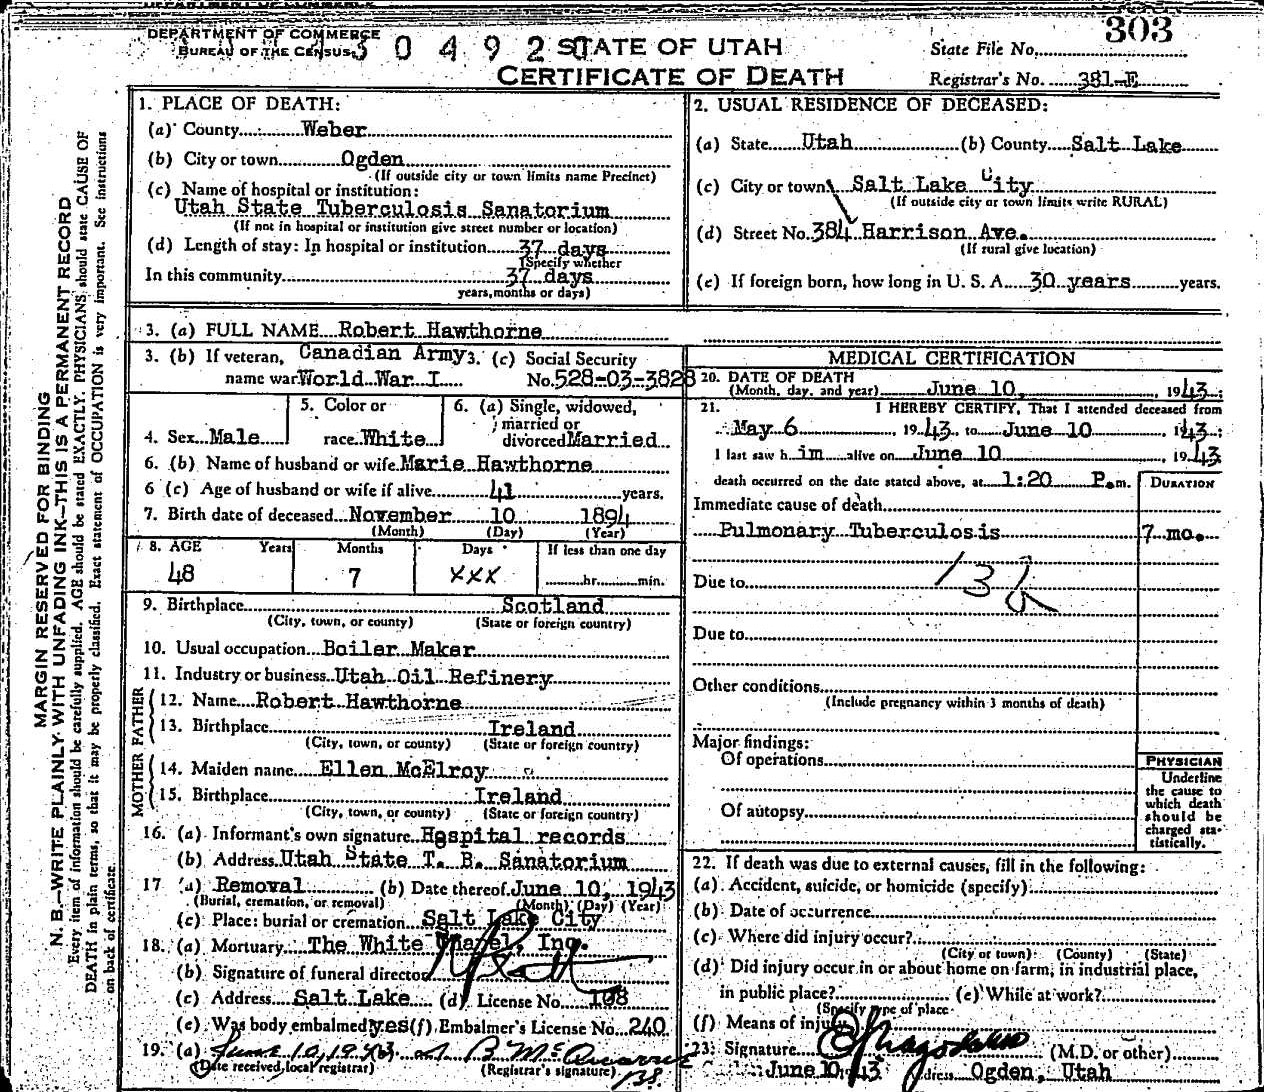 DEPARTMENT OF COMMERCE
BUREAU OF THE CENSUS
3 0 4 9 2 0
STATE OF UTAH
CERTIFICATE OF DEATH
303
State File No.
Registrar's No. 381-E
MARGIN RESERVED FOR BINDING
N. B.—WRITE PLAINLY WITH UNFADING INK—THIS IS A PERMANENT RECORD
Every item of information should be carefully supplied. AGE should be stated EXACTLY. PHYSICIANS should state CAUSE OF
DEATH in plain terms, so that it may be properly classified. Exact statement of OCCUPATION is very important. See instructions
on back of certificate.
1. PLACE OF DEATH:
(a) County Weber
(b) City or town Ogden
(If outside city or town limits name Precinct)
(c) Name of hospital or institution:
Utah State Tuberculosis Sanatorium
(If not in hospital or institution give street number or location)
(d) Length of stay: In hospital or institution 37 days
(Specify whether
In this community 37 days
years, months or days)
2. USUAL RESIDENCE OF DECEASED:
(a) State Utah (b) County Salt Lake
(c) City or town Salt Lake City
(If outside city or town limits write RURAL)
(d) Street No. 384 Harrison Ave.
(If rural give location)
(e) If foreign born, how long in U. S. A. 30 years years.
3. (a) FULL NAME Robert Hawthorne
3. (b) If veteran, Canadian Army
name war World War I
3. (c) Social Security
No. 528-03-3828
4. Sex Male
5. Color or
race White
6. (a) Single, widowed,
married or
divorced Married
6. (b) Name of husband or wife Marie Hawthorne
6 (c) Age of husband or wife if alive 41 years.
7. Birth date of deceased November 10 1894
(Month) (Day) (Year)
8. AGE Years Months Days If less than one day
48 7 XXX hr. min.
9. Birthplace Scotland
(City, town, or county) (State or foreign country)
10. Usual occupation Boiler Maker
11. Industry or business Utah Oil Refinery
FATHER
12. Name Robert Hawthorne
13. Birthplace Ireland
(City, town, or county) (State or foreign country)
MOTHER
14. Maiden name Ellen McElroy
15. Birthplace Ireland
(City, town, or county) (State or foreign country)
16. (a) Informant's own signature Hospital records
(b) Address Utah State T. B. Sanatorium
17 (a) Removal (b) Date thereof June 10, 1943
(Burial, cremation, or removal) (Month) (Day) (Year)
(c) Place: burial or cremation Salt Lake City
18. (a) Mortuary The White Chapel, Inc.
(b) Signature of funeral director
(c) Address Salt Lake (d) License No. 108
(e) Was body embalmed yes (f) Embalmer's License No. 240
19. (a) June 10, 1943
(Date received local registrar) (Registrar's signature)
MEDICAL CERTIFICATION
20. DATE OF DEATH
(Month, day, and year) June 10, 1943;
21. I HEREBY CERTIFY, That I attended deceased from
May 6, 1943, to June 10, 1943;
I last saw him alive on June 10, 1943
death occurred on the date stated above, at 1:20 P.m.
DURATION
Immediate cause of death
Pulmonary Tuberculosis 7 mo.
Due to
Due to
Other conditions
(Include pregnancy within 3 months of death)
Major findings:
Of operations
Of autopsy
PHYSICIAN
Underline
the cause to
which death
should be
charged sta-
tistically.
22. If death was due to external causes, fill in the following:
(a) Accident, suicide, or homicide (specify)
(b) Date of occurrence
(c) Where did injury occur?
(City or town) (County) (State)
(d) Did injury occur in or about home on farm, in industrial place,
in public place? (e) While at work?
(Specify type of place
(f) Means of injury
23. Signature (M.D. or other)
June 10, 1943 Address Ogden, Utah